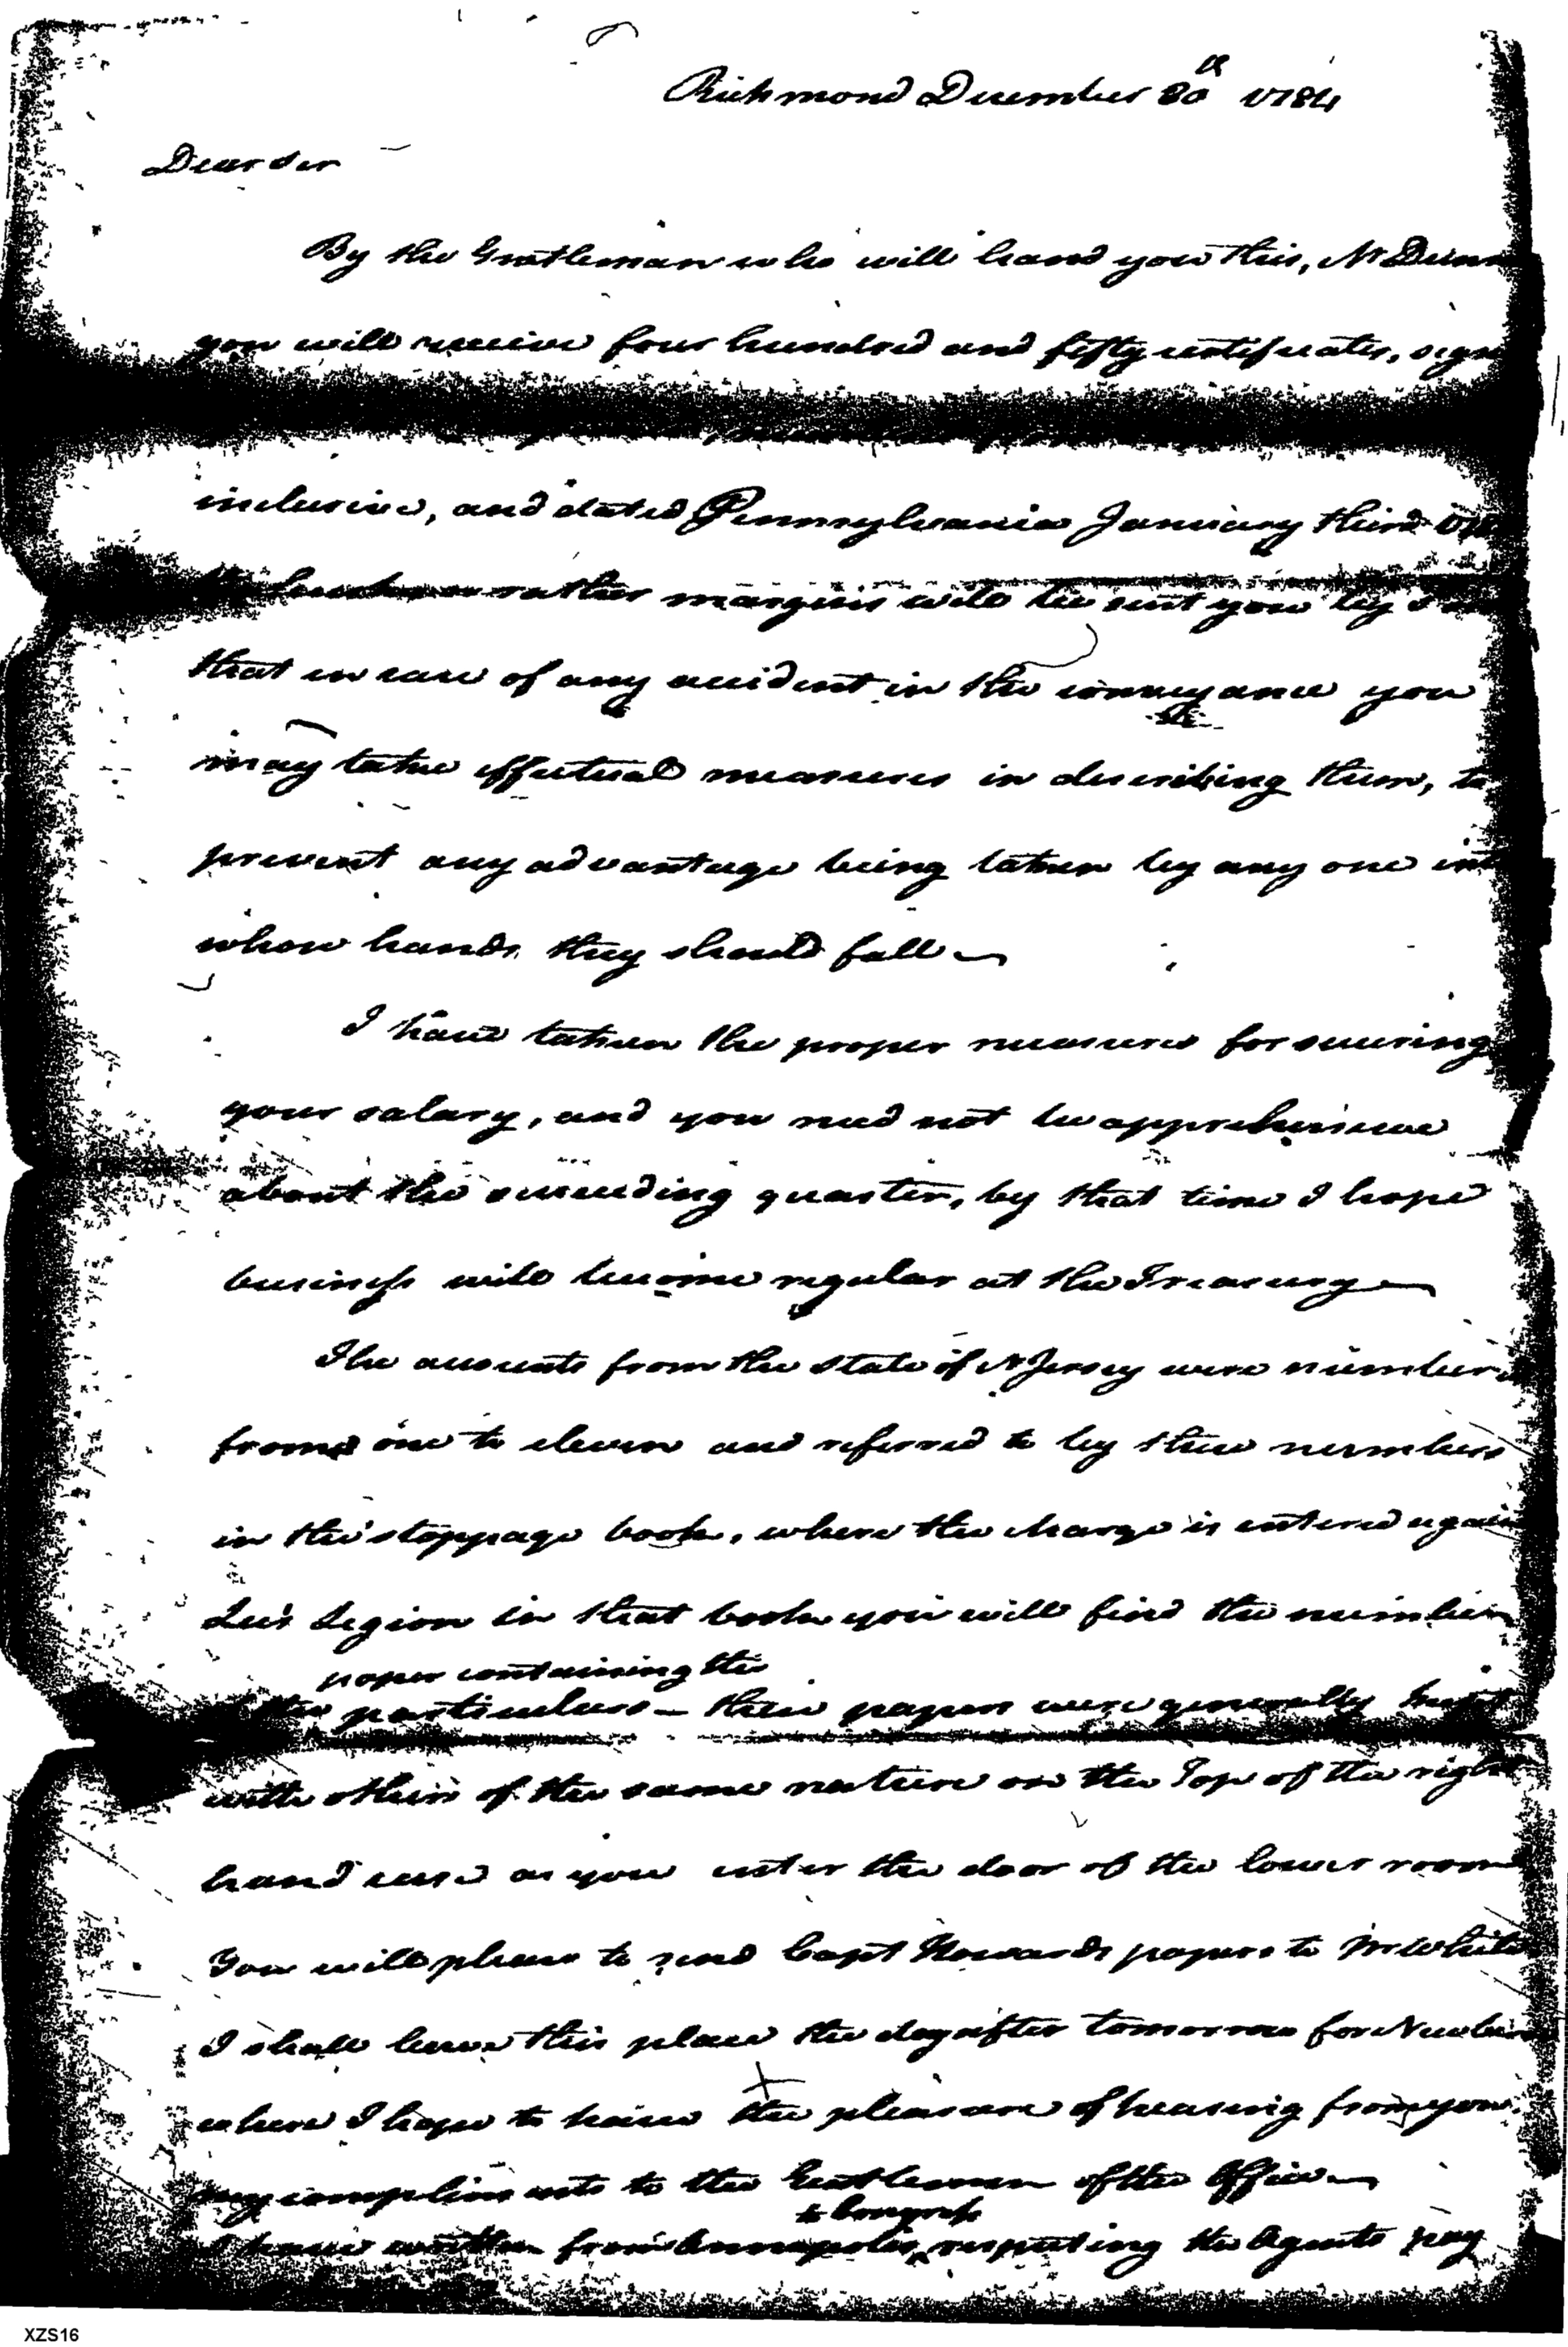 Richmond December 30th 1784
Dear Sir
By the Gentleman who will hand you this, Mr
you will receive four hundred and fifty certificates,
inclusive, and dated Pennsylvania January third
rather margins will be sent you by
that in case of any accident in the conveyance you
may take effectual measures in describing them, to
prevent any advantage being taken by any one
whose hands they should fall
I have taken the proper measures for securing
your salary, and you need not be apprehensive
about the succeeding quarter, by that time I hope
business will become regular at the Treasury
The accounts from the State of N Jersey were
from one to eleven and referred to by these numbers
in the stoppage book, where the charge is entered
Lee's Legion in that book you will find the
paper containing the
particulars — these papers were generally
with others of the same nature on the Top of the right
hand case as you enter the door of the lower room
You will please to send Capt Howards papers to Mr White
I shall leave this place the day after tomorrow for
where I hope to have the pleasure of hearing from you.
my compliments to the Gentlemen of the Office
to Congress
I have written from Annapolis, respecting the Agents pay
XZS16